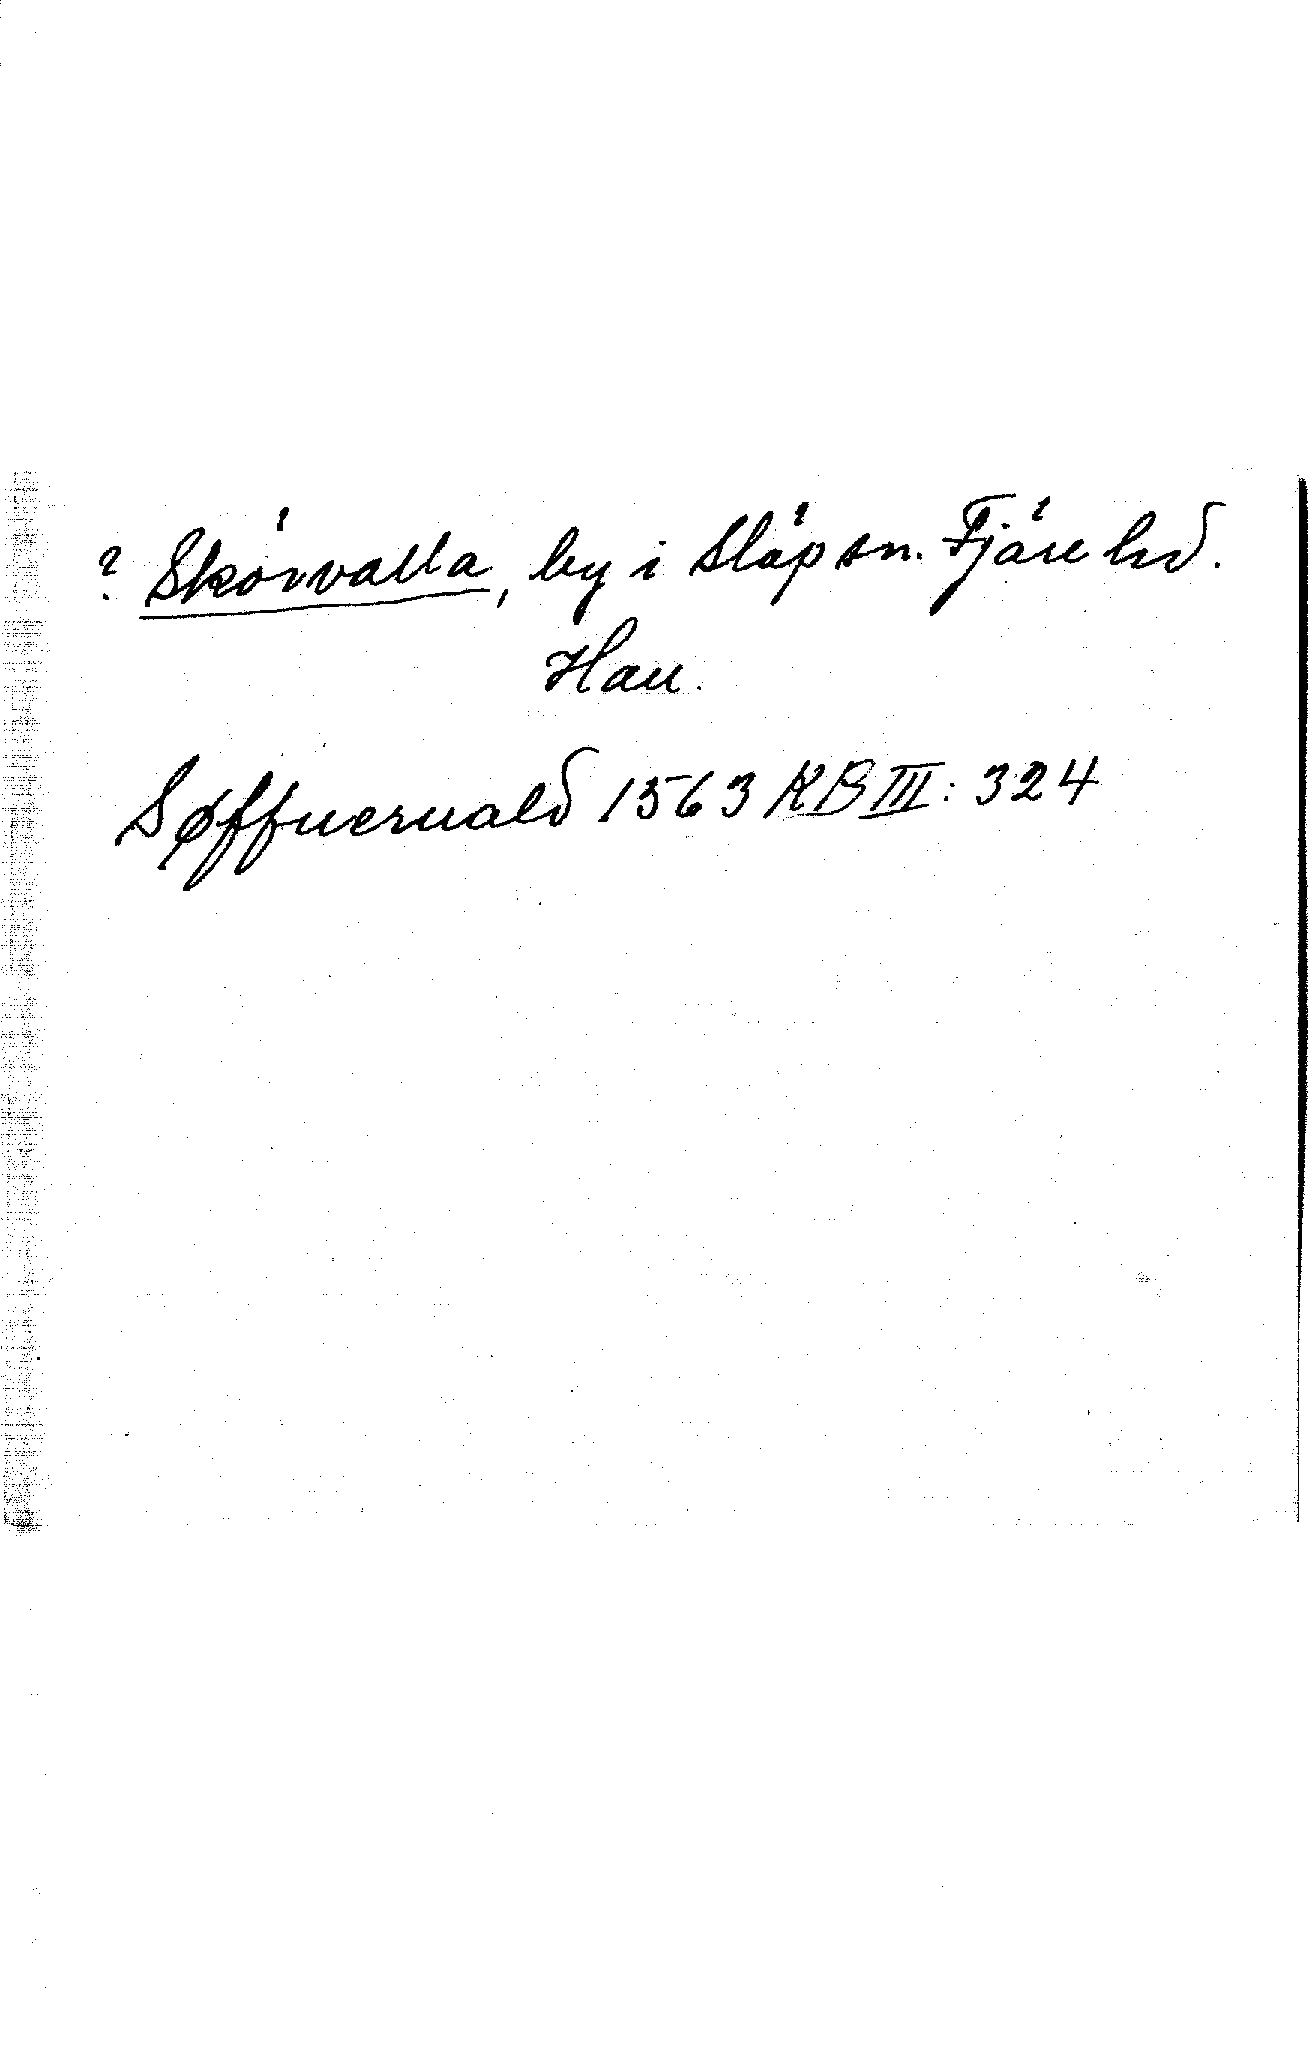 ? Skörvalla, by i Släp sn. Fjäre hd.
Hall.
Søffueruald 1563 KB III: 324